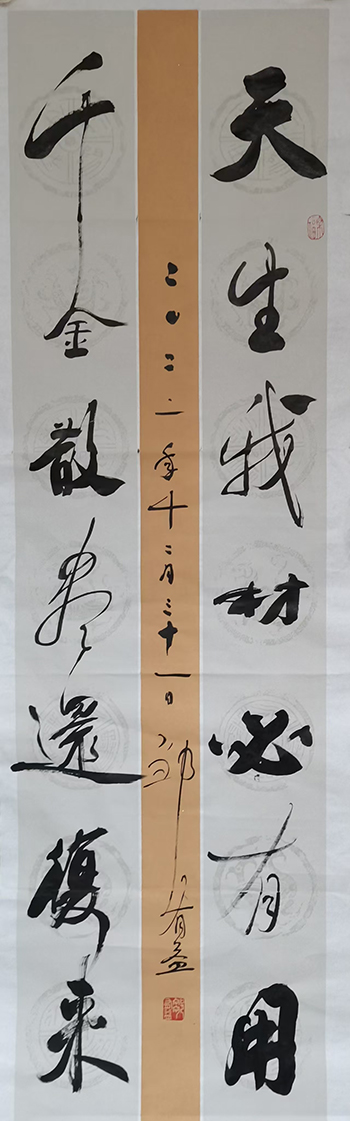 天生我材必有用
千金散尽還復来
二〇二一年十二月三十一日